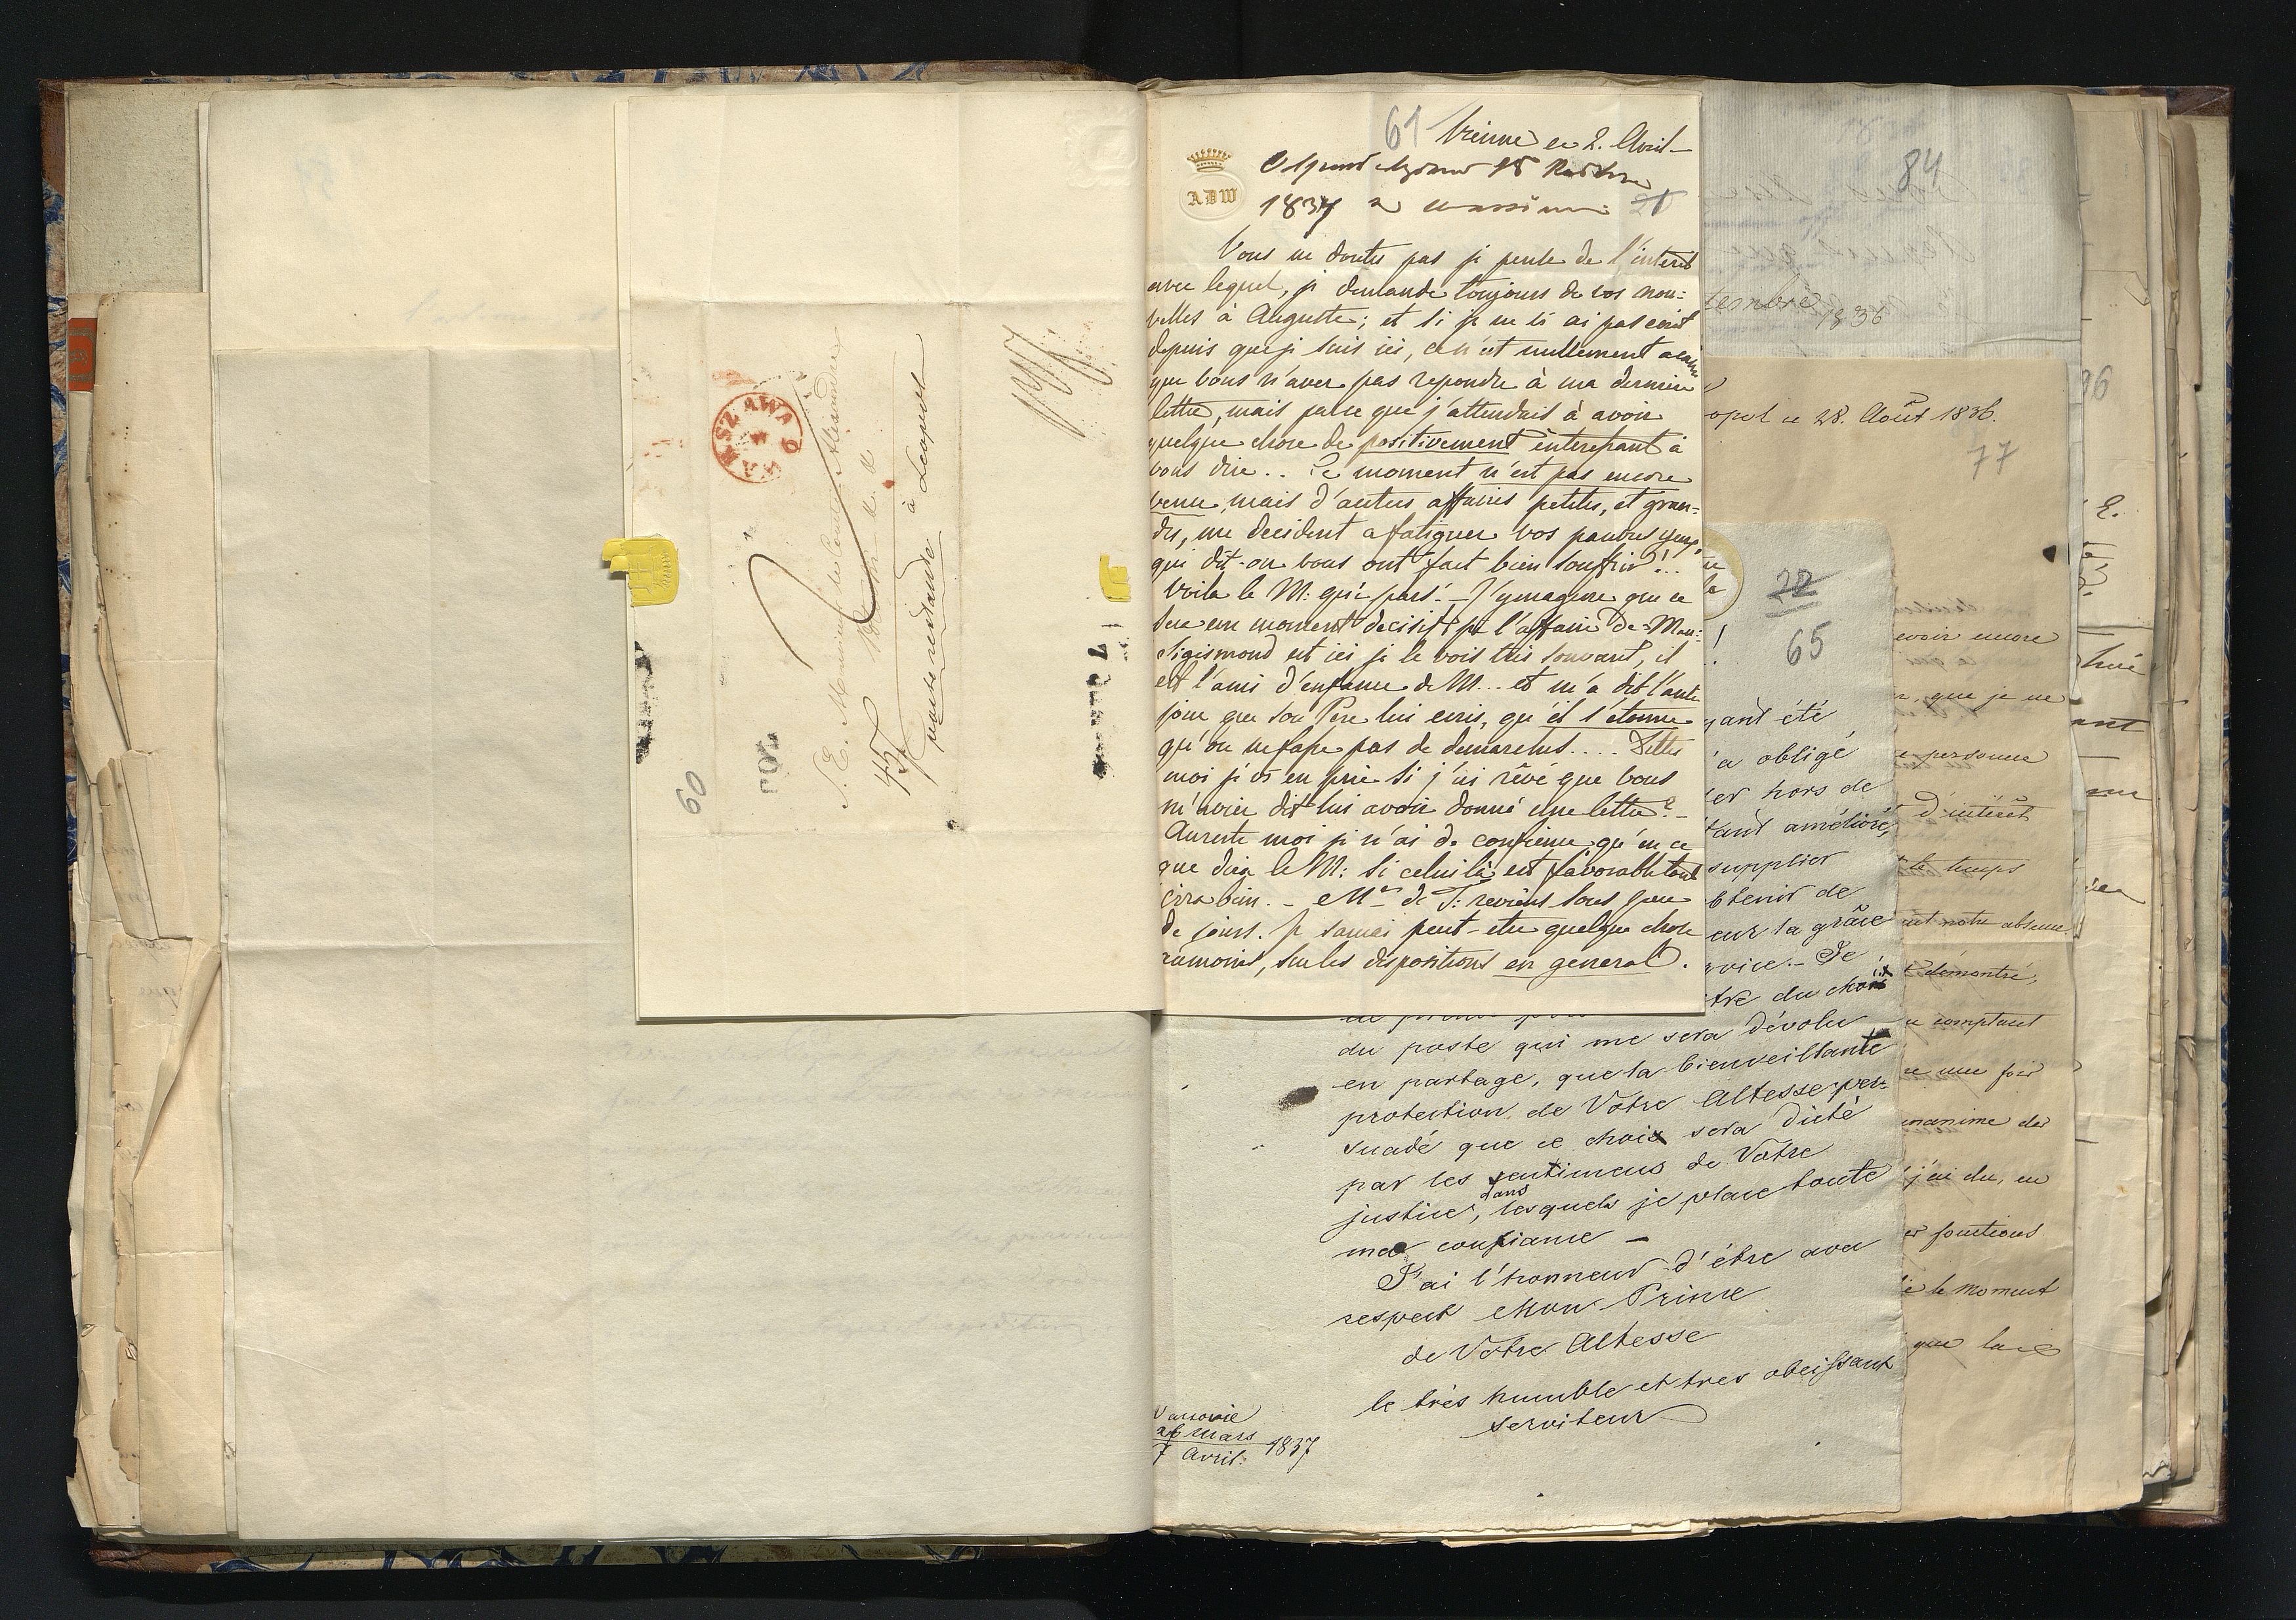 WARSZAWA
S. E. Monsieur le Comte Alexandre
à Leopol
poste restante
60
61
Vienne ce 2. Avril
ADW
1837
Vous ne doutés pas je pense de l'interêt
avec lequel, je demande toujours de vos nou=
velles à Auguste; et si je ne vs ai pas ecrit
depuis que je suis ici, ce n'est nullement
que vous n'avez pas repondu à ma derniere
lettre, mais parce que j'attendais à avoir
quelque chose de positivement interessant à
vous dire.. Le moment n'est pas encore
venu, mais d'autres affaires petites, et gran=
des, me decident a fatiguer vos pauvres yeux,
qui dit-on vous ont fait bien souffrir!..
Voila le M: qui part. - J'ymagine que ce
sera un moment decisif pr l'affaire de Mau:
Sigismond est ici je le vois très souvant, il
est l'ami d'enfance de M... et m'a dit l'autre
jour que son Pere lui ecris, qu'il s'etonne
qu'on ne fasse pas de demarches.... Dittes
moi je vs en prie si j'ai rêvé que vous
m'aviez dit lui avoir donné une lettre? -
Aureste moi je n'ai de confience qu'en ce
que dira le M: si celui là est favorable tout
ira bien. - Mme de T: reviens sous peu
de jours. Je saurai peut-etre quelque chose
aumoins, sur les dispositions en general.
84
tembre 1836
opol ce 28. Août 1836.
77
28
65
yant été
'a obligé
er hors de
tant amélioré,
supplier
btenir de
eur la grâce
rvice. - Je
tre du choix
du poste qui me sera dévolu
en partage, que la bienveillante
protection de Votre Altesse per=
suadé que ce choix sera dicté
par les sentimens de Votre
dans
justice, lesquels je place toute
ma confiance -
J'ai l'honneur d'être avec
respect Mon Prince
de Votre Altesse
le très humble et tres obeissant
serviteur
Varsovie
26 Mars
7 Avril. 1837
evoir encore
r, que je ne
e personne
d'intérêt
t le temps
nt notre absence
t démontré,
u comptant
re une fois
nanime des
j'ai du, en
es fonctions
ié le moment
que lais
86
E.
ant